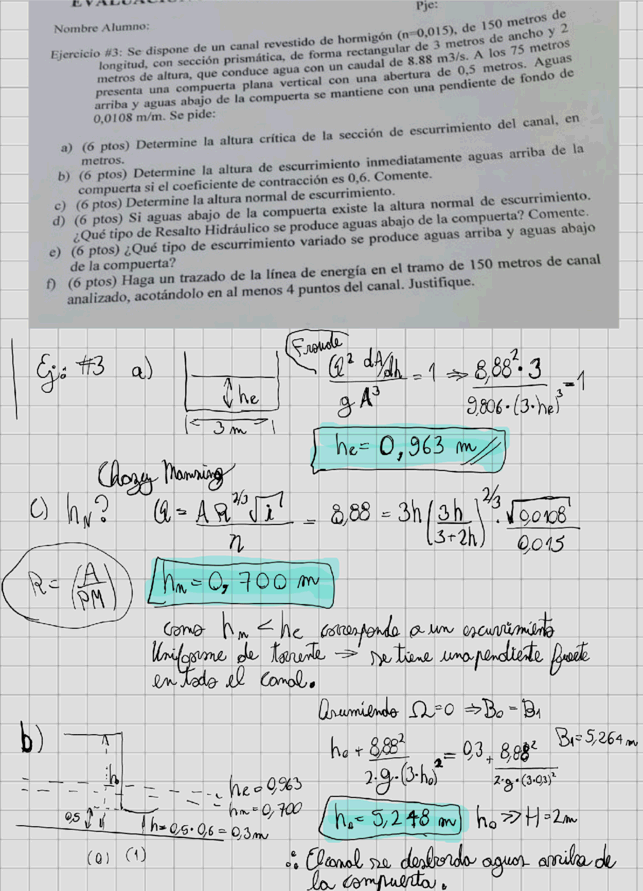 EVALUACIÓN
Pje:
Nombre Alumno:
Ejercicio #3: Se dispone de un canal revestido de hormigón (n=0,015), de 150 metros de
longitud, con sección prismática, de forma rectangular de 3 metros de ancho y 2
metros de altura, que conduce agua con un caudal de 8.88 m3/s. A los 75 metros
presenta una compuerta plana vertical con una abertura de 0,5 metros. Aguas
arriba y aguas abajo de la compuerta se mantiene con una pendiente de fondo de
0,0108 m/m. Se pide:
a) (6 ptos) Determine la altura crítica de la sección de escurrimiento del canal, en
metros.
b) (6 ptos) Determine la altura de escurrimiento inmediatamente aguas arriba de la
compuerta si el coeficiente de contracción es 0,6. Comente.
c) (6 ptos) Determine la altura normal de escurrimiento.
d) (6 ptos) Si aguas abajo de la compuerta existe la altura normal de escurrimiento.
¿Qué tipo de Resalto Hidráulico se produce aguas abajo de la compuerta? Comente.
e) (6 ptos) ¿Qué tipo de escurrimiento variado se produce aguas arriba y aguas abajo
de la compuerta?
f) (6 ptos) Haga un trazado de la línea de energía en el tramo de 150 metros de canal
analizado, acotándolo en al menos 4 puntos del canal. Justifique.
Ej: #3 a)
hc
3 m
Froude
Q² dA/dh / g A³ = 1 ⇒ 8,88² · 3 / 9,806 · (3·hc)³ = 1
hc = 0,963 m
Chezy Manning
c) hN? Q = A R^2/3 √i / n = 8,88 = 3h (3h / 3+2h)^2/3 · √0,0108 / 0,015
R = (A / PM)
hn = 0,700 m
como hn < hc corresponde a un escurrimiento
Uniforme de torrente → se tiene una pendiente fuerte
en todo el canal.
Asumiendo Ω=0 ⇒ B0 = B1
b)
h0 + 8,88² / 2·g·(3·h0)² = 0,3 + 8,88² / 2·g·(3·0,3)² B1 = 5,264 m
h0
hc = 0,963
hn = 0,700
0,5
h = 0,5 · 0,6 = 0,3 m
(0) (1)
h0 = 5,248 m h0 >> H = 2m
∴ El canal se desborda aguas arriba de
la compuerta.